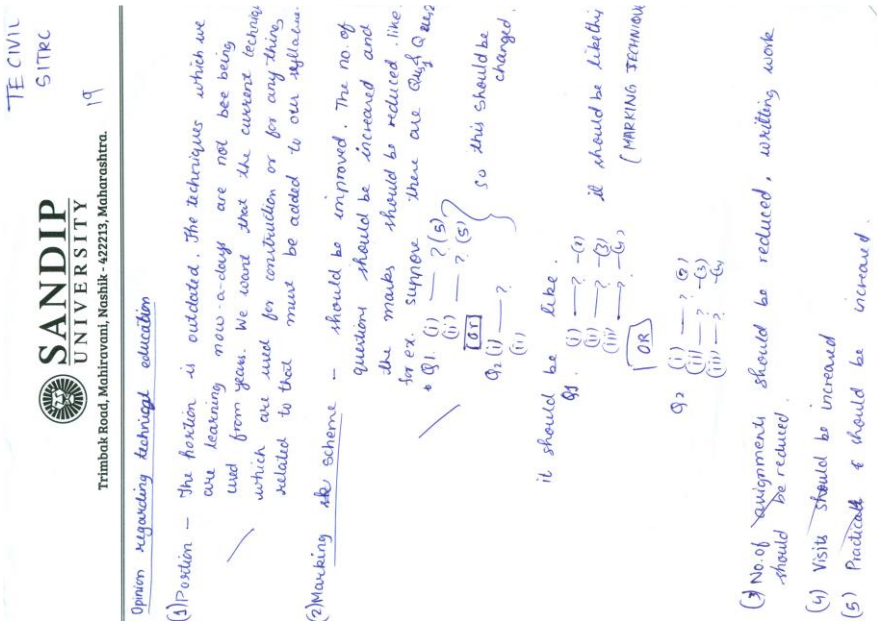 TE CIVIL
SITRC
19
SANDIP
UNIVERSITY
Trimbak Road, Mahiravani, Nashik - 422213, Maharashtra.
Opinion regarding technical education
(1) Portion — The portion is outdated. The techniques which we
are learning now-a-days are not bee being
used from years. We want that the current techniqu
which are used for construction or for any thing
related to that must be added to our syllabus.
(2) Marking scheme — should be improved. The no. of
questions should be increased and
the marks should be reduced. like.
for ex. suppose there are Ques 1 & Ques 2
Q1. (i) — ? (5)
(ii) — ? (5)
or
Q2 (i) — ?
(ii)
so this should be
changed.
it should be like.
Q1. (i) — ? -(2)
(ii) — ? -(3)
(iii) — ?
OR
Q2 (i) — ?
(ii) — ? -(3)
(iii) — ?
it should be like thi
(MARKING TECHNIQUE
(3) No. of assignments should be reduced, writting work
should be reduced.
(4) Visits should be increased
(5) Practicals should be increased.